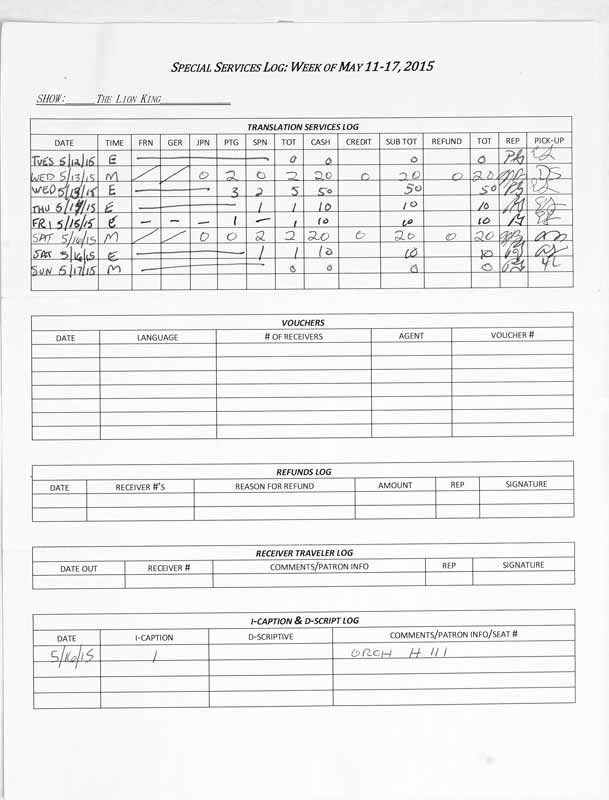 SPECIAL SERVICES LOG: WEEK OF MAY 11-17, 2015
SHOW: THE LION KING
TRANSLATION SERVICES LOG
DATE TIME FRN GER JPN PTG SPN TOT CASH CREDIT SUB TOT REFUND TOT REP PICK-UP
TUES 5/12/15 E 0 0 0 0
WED 5/13/15 M 0 2 0 2 20 0 20 0 20
WED 5/13/15 E 3 2 5 50 50 50
THU 5/14/15 E 1 1 10 10 10
FRI 5/15/15 E - - - 1 - 1 10 10 10
SAT 5/16/15 M 0 0 2 2 20 0 20 0 20
SAT 5/16/15 E 1 1 10 10 10
SUN 5/17/15 M 0 0 0 0
VOUCHERS
DATE LANGUAGE # OF RECEIVERS AGENT VOUCHER #
REFUNDS LOG
DATE RECEIVER #'S REASON FOR REFUND AMOUNT REP SIGNATURE
RECEIVER TRAVELER LOG
DATE OUT RECEIVER # COMMENTS/PATRON INFO REP SIGNATURE
I-CAPTION & D-SCRIPT LOG
DATE I-CAPTION D-SCRIPTIVE COMMENTS/PATRON INFO/SEAT #
5/16/15 1 ORCH H 111